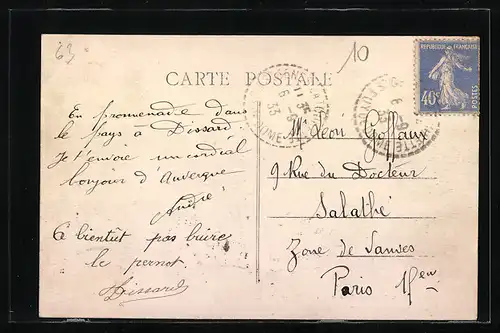 63
10
CARTE POSTALE
REPUBLIQUE FRANÇAISE
40c
POSTES
En promenade dans
le Pays à Dissard
Je t'envoie un cordial
bonjour d'Auvergne
André
A bientôt pas boire
le pernot
Dissard
Mr Léon Goffaux
9 Rue du Docteur
Salathé
Zone de Vanves
Paris